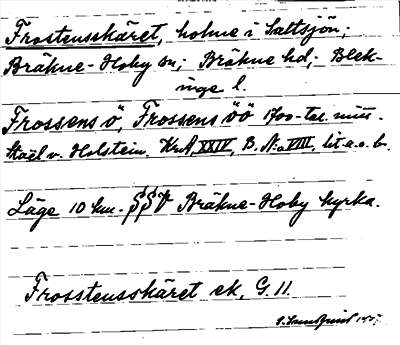 Frostensskäret, holme i Saltsjön;
Bräkne-Hoby sn; Bräkne hd; Blek-
inge l.
Frossens ö, Frossens öö 1700-tal. mitt.
Staël v. Holstein. KrA, XXIV, B. No VIII, lit a. o. b.
Läge 10 km. SSV Bräkne-Hoby kyrka.
Frosstensskäret ek. G. 11.